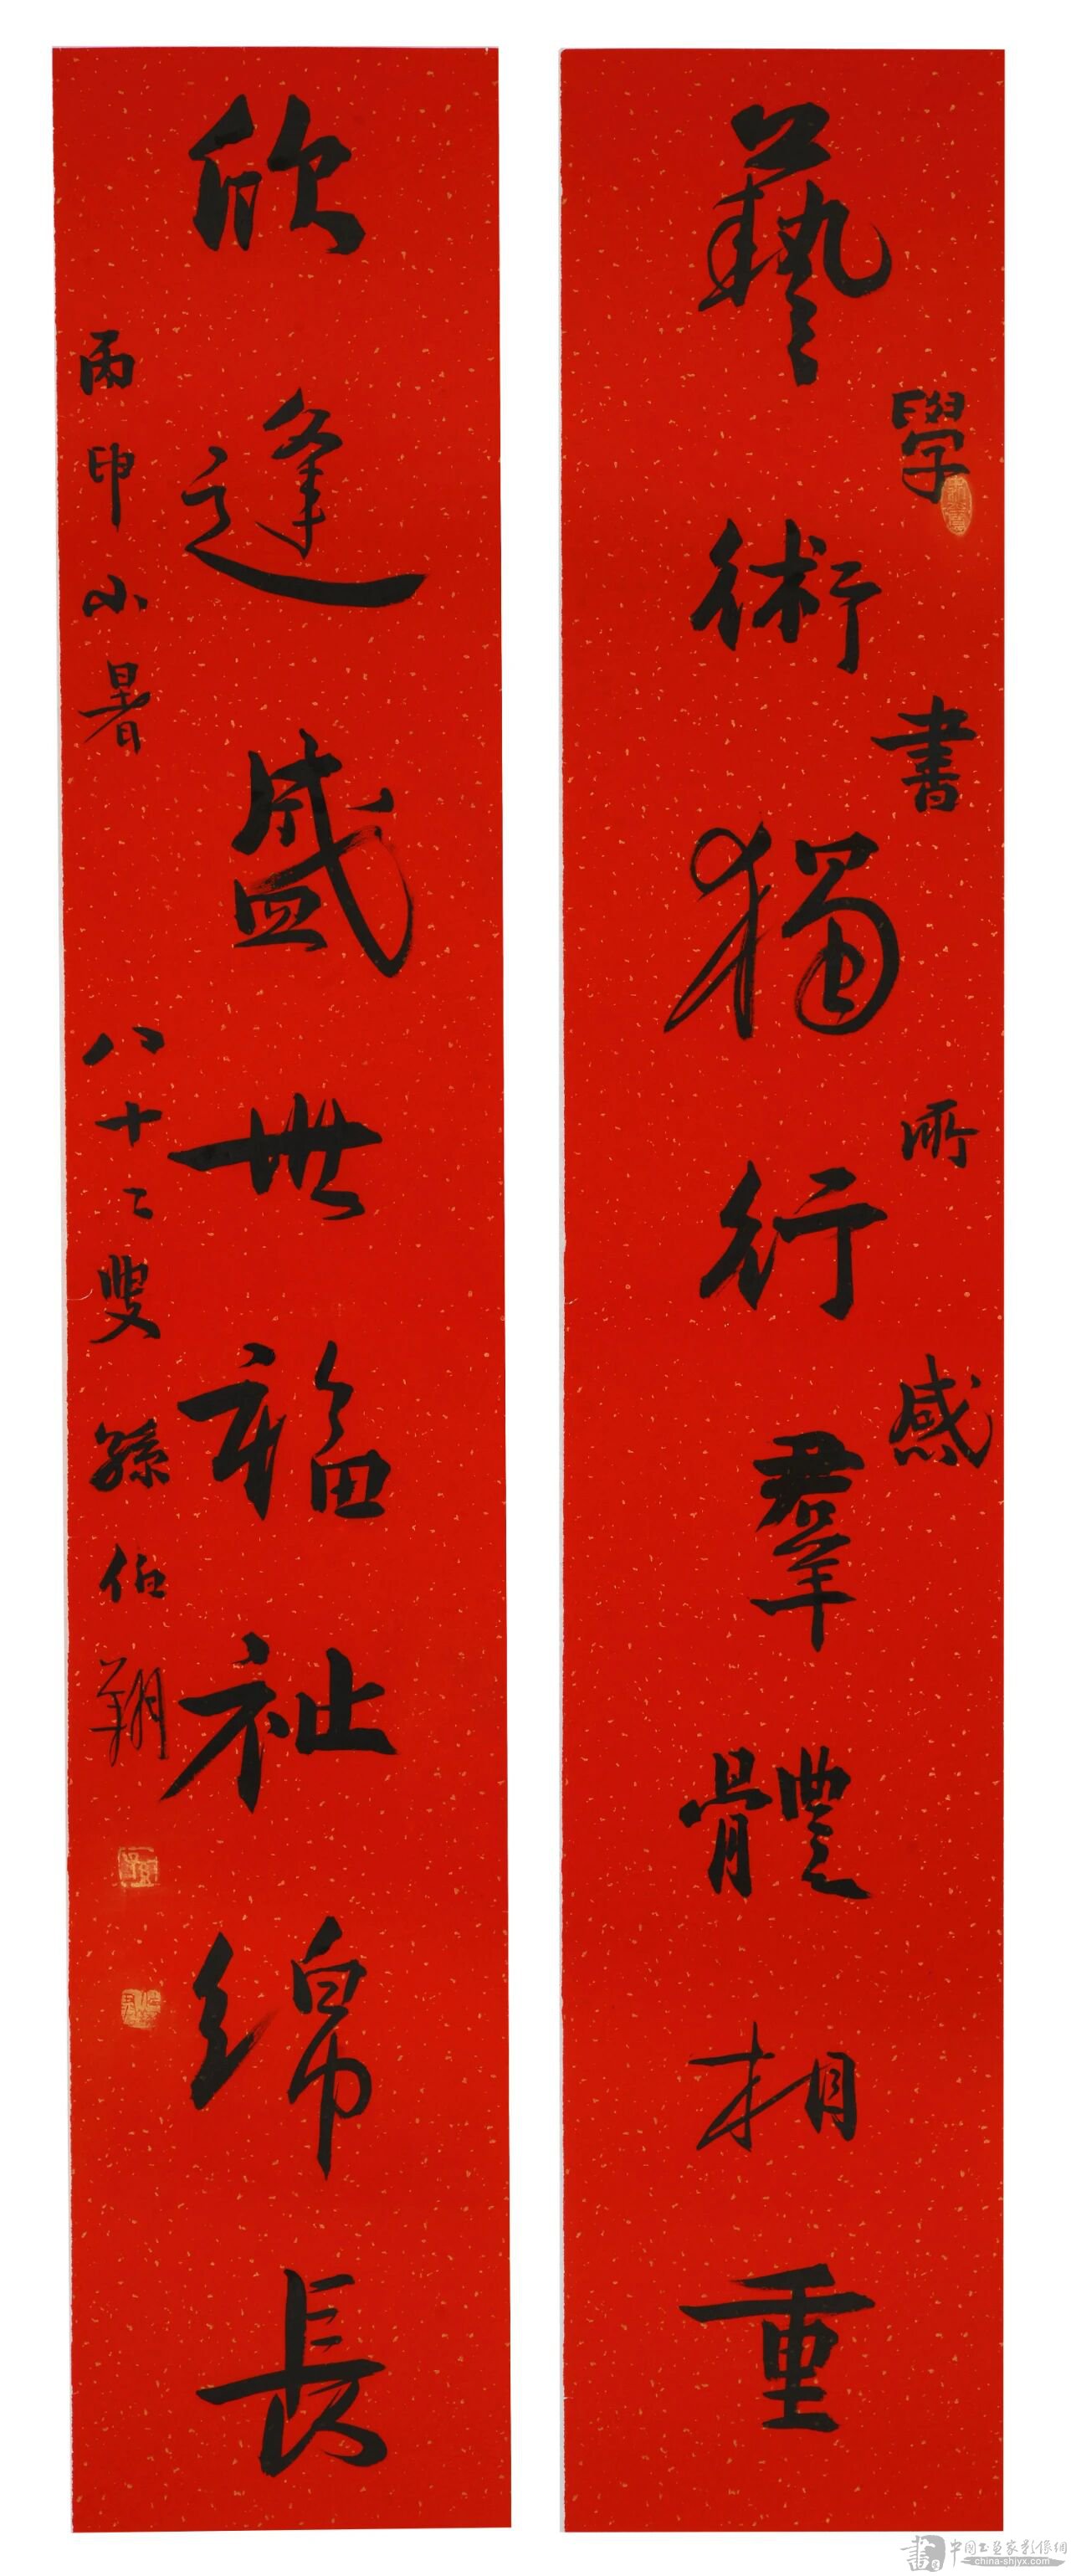 學書所感
藝術獨行羣體相重
欣逢盛世福祉綿長
丙申小暑
八十二叟孫伯翔
中国书画家影像网
china-shjyx.com